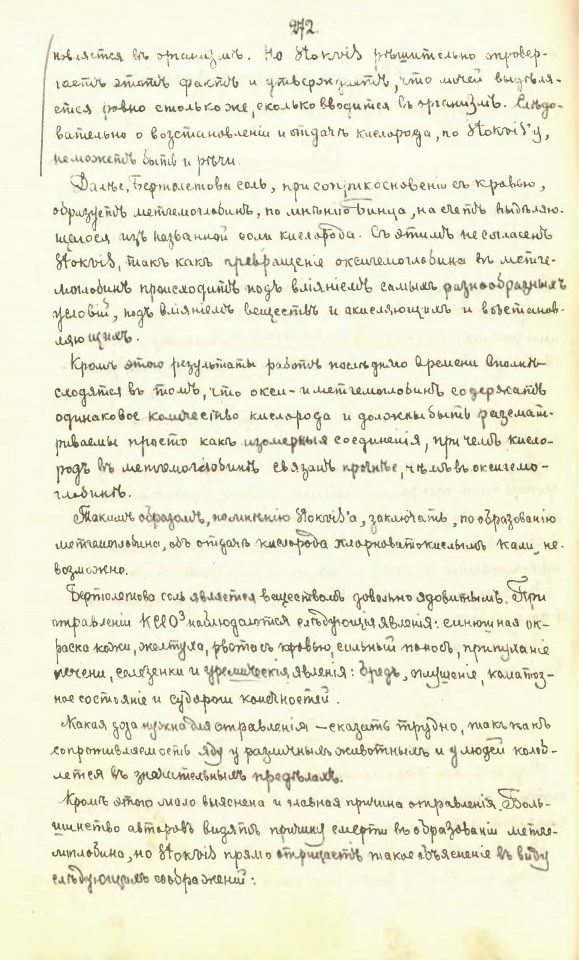 272.
новляется въ организмѣ. Но Stokvis рѣшительно опровер-
гаетъ этотъ фактъ и утверждаетъ, что мочей выдѣля-
ется ровно столько же, сколько вводится въ организмъ. Слѣдо-
вательно о возстановленіи и отдачѣ кислорода, по Stokvis'у,
не можетъ быть и рѣчи.
Далѣе, Бертолетова соль, при соприкосновеніи съ кровью,
образуетъ метгемоглобинъ, по мнѣнію Бинца, на счетъ выдѣляю-
щагося изъ названной соли кислорода. Съ этимъ не согласенъ
Stokvis, такъ какъ превращеніе оксигемоглобина въ метге-
моглобинъ происходитъ подъ вліяніемъ самыхъ разнообразныхъ
условій, подъ вліяніемъ веществъ и окисляющихъ и возстанов-
ляющихъ.
Кромѣ этого результаты работъ послѣдняго времени вполнѣ
сходятся въ томъ, что окси- и метгемоглобинъ содержатъ
одинаковое количество кислорода и должны быть разсмат-
риваемы просто какъ изомерныя соединенія, при чемъ кисло-
родъ въ метгемоглобинѣ связанъ прочнѣе, чѣмъ въ оксигемо-
глобинѣ.
Такимъ образомъ, по мнѣнію Stokvis'а, заключать, по образованію
метгемоглобина, объ отдачѣ кислорода хлорноватокислымъ кали, не-
возможно.
Бертолетова соль является веществомъ довольно ядовитымъ. При
отравленіи KClO³ наблюдаются слѣдующія явленія: синюшная ок-
раска кожи, желтуха, рвота съ кровью, сильный поносъ, припуханіе
печени, селезенки и уремическія явленія: бредъ, оглушеніе, коматоз-
ное состояніе и судороги конечностей.
Какая доза нужна для отравленія – сказать трудно, такъ какъ
сопротивляемость яду у различныхъ животныхъ и у людей колѣб-
лется въ значительныхъ предѣлахъ.
Кромѣ этого мало выяснена и главная причина отравленія. Боль-
шинство авторовъ видятъ причину смерти въ образованіи метге-
моглобина, но Stokvis прямо отрицаетъ такое объясненіе въ виду
слѣдующихъ соображеній: